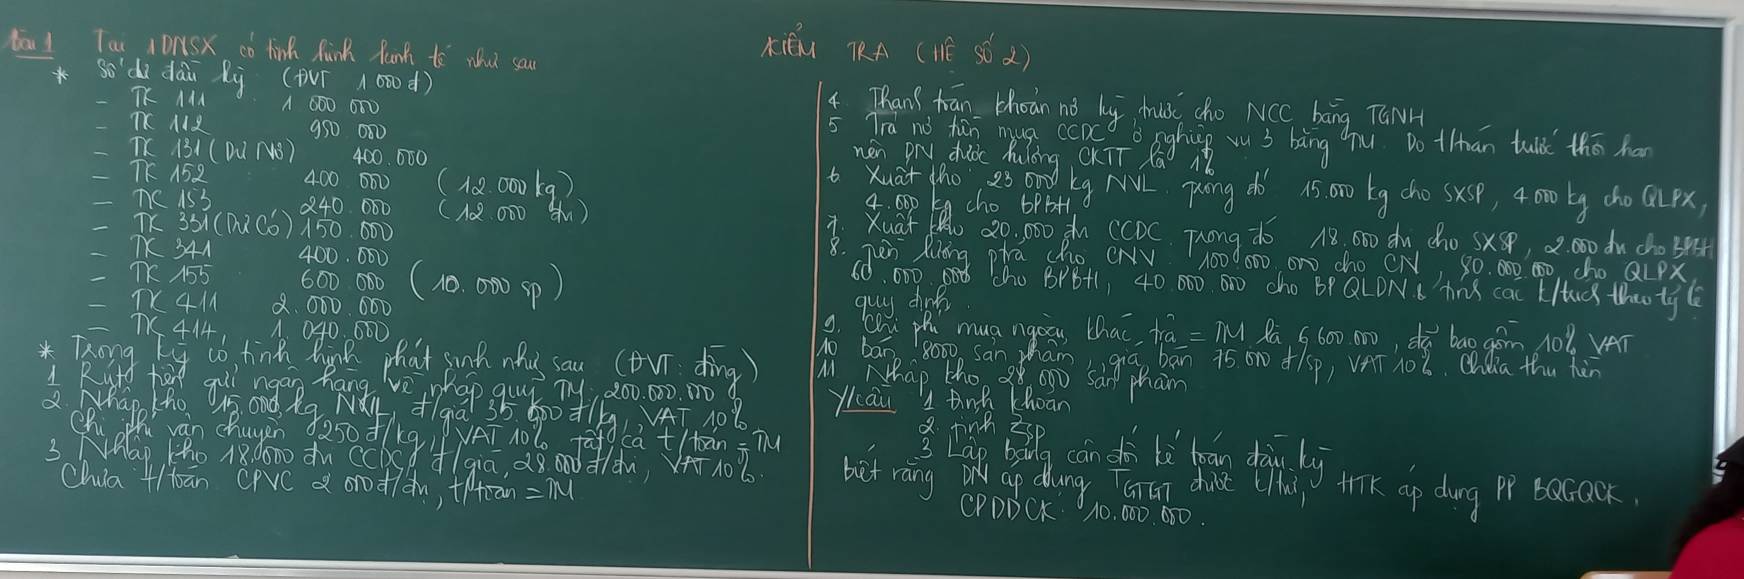 Bài 1 Tại 1 DNSX có tình hình kinh tế như sau
* Số dư đầu kỳ (ĐVT 1 000 đ)
- TK 111 1 000 000
- TK 112 950 000
- TK 131 (Dư Nợ) 400.000
- TK 152 400 000 (12.000 kg)
- TK 153 240 000 (12.000 đv)
- TK 331 (Dư Có) 150.000
- TK 341 400.000
- TK 155 600 000 (10.000 sp)
- TK 411 2.000.000
- TK 414 1 040.000
* Trong kỳ có tình hình phát sinh như sau (ĐVT: đồng)
1 Rút tiền gửi ngân hàng về nhập quỹ TM: 200.000.000
2. Nhập kho 15.000 kg NVL, đ/giá 35.000 đ/kg, VAT 10%
Chi phí vận chuyển 250 đ/kg, VAT 10%. Tất cả t/toán = TM
3 Nhập kho 18.000 đv CCDC, đ/giá 28.000 đ/đv, VAT 10%.
Chưa t/toán. CPVC 2 000 đ/đv, t/toán = TM
KIỂM TRA (HỆ SỐ 2)
4 Thanh toán khoản nợ kỳ trước cho NCC bằng TGNH
5 Trả nợ tiền mua CCDC ở nghiệp vụ 3 bằng TM. Do t/toán trước thời hạn
nên DN được hưởng CKTT là 1%
6 Xuất kho 23 000 kg NVL. Trong đó 15.000 kg cho SXSP, 4 000 kg cho QLPX,
4.000 kg cho BPBH
7. Xuất kho 20.000 đv CCDC. Trong đó 18.000 đv cho SXSP, 2.000 đv cho BPBH
8. Tiền lương phả trả cho CNV 100.000.000 cho CN, 80.000.000 cho QLPX,
60.000.000 cho BPBH, 40.000.000 cho BP QLDN & tính các k/trích theo tỷ lệ
quy định.
9. Chi phí mua ngoài khác trả = TM là 6 600.000, đã bao gồm 10% VAT
10 Bán 8000 sản phẩm, giá bán 75.000 đ/sp, VAT 10%. Chưa thu tiền
11 Nhập kho 28 000 sản phẩm
Y/cầu 1 Định khoản
2. Tính Zsp
3 Lập bảng cân đối kế toán đầu kỳ
biết rằng DN áp dụng TGTGT được k/trừ, HTK áp dụng PP BQGQCK,
CPDDCK 10.000.000.